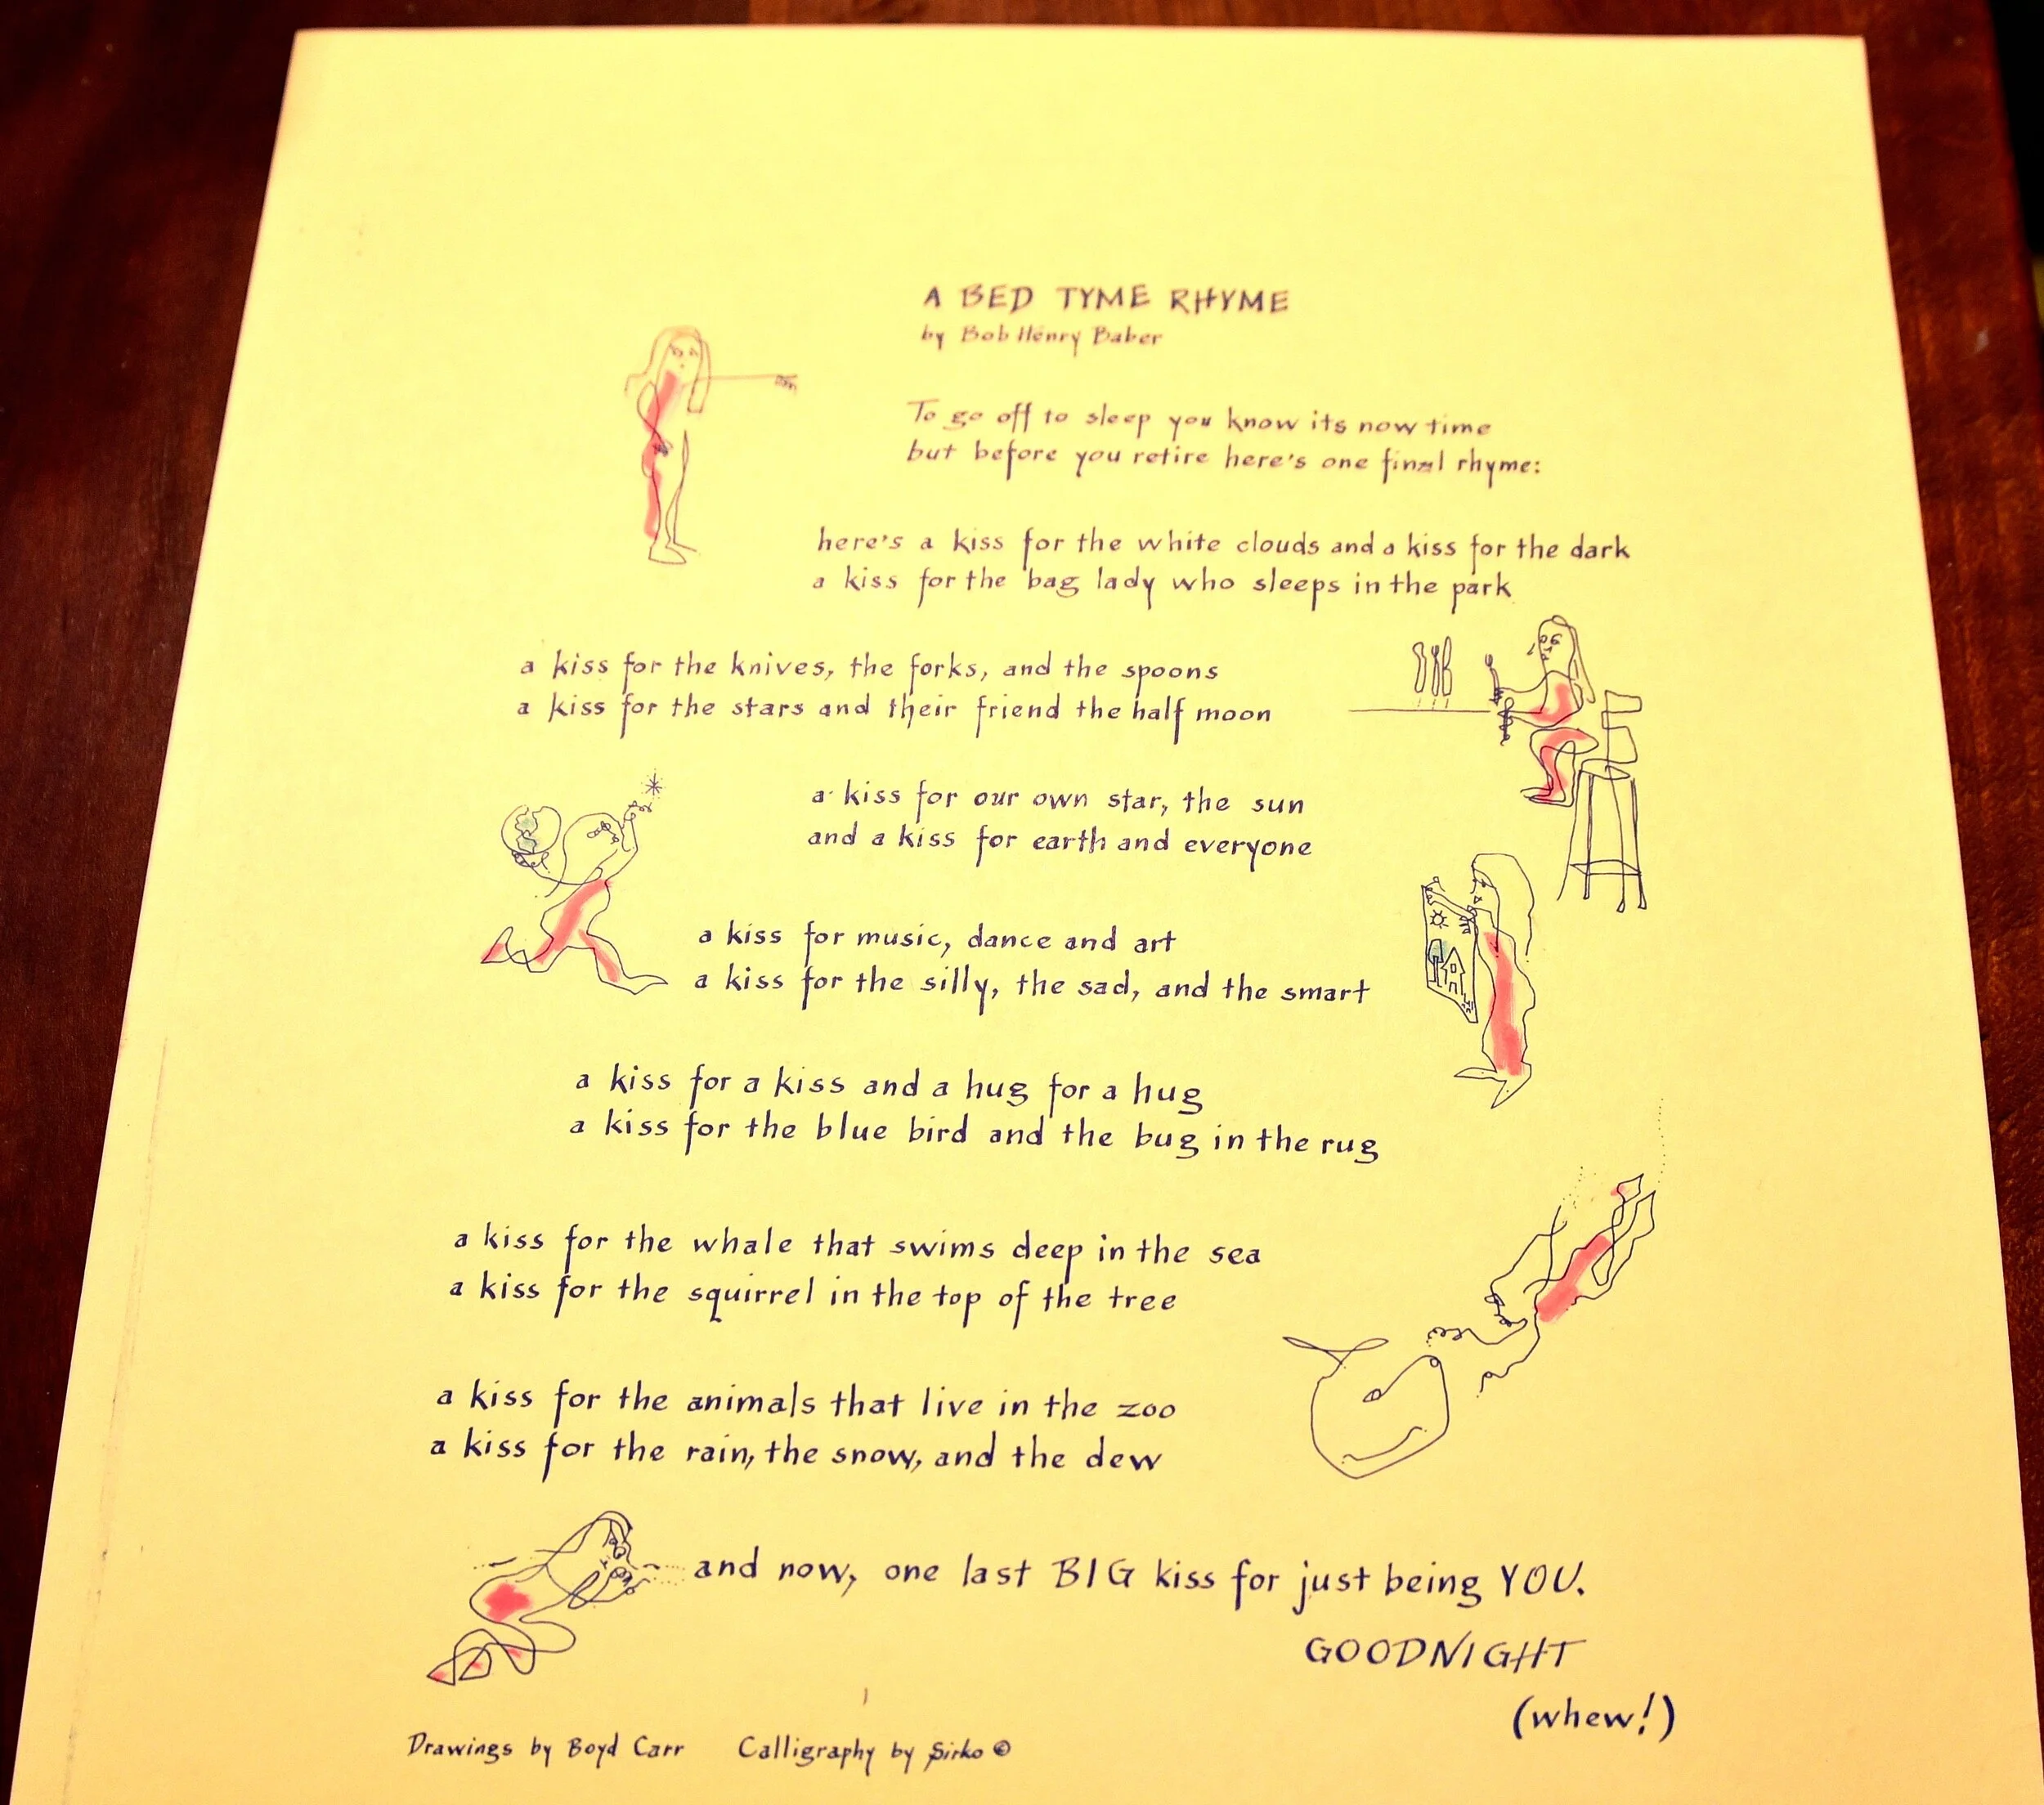 A BED TYME RHYME
by Bob Henry Baker
To go off to sleep you know its now time
but before you retire here's one final rhyme:
here's a kiss for the white clouds and a kiss for the dark
a kiss for the bag lady who sleeps in the park
a kiss for the knives, the forks, and the spoons
a kiss for the stars and their friend the half moon
a kiss for our own star, the sun
and a kiss for earth and everyone
a kiss for music, dance and art
a kiss for the silly, the sad, and the smart
a kiss for a kiss and a hug for a hug
a kiss for the blue bird and the bug in the rug
a kiss for the whale that swims deep in the sea
a kiss for the squirrel in the top of the tree
a kiss for the animals that live in the zoo
a kiss for the rain, the snow, and the dew
and now, one last BIG kiss for just being YOU.
GOODNIGHT
(whew!)
Drawings by Boyd Carr Calligraphy by Sirko ©